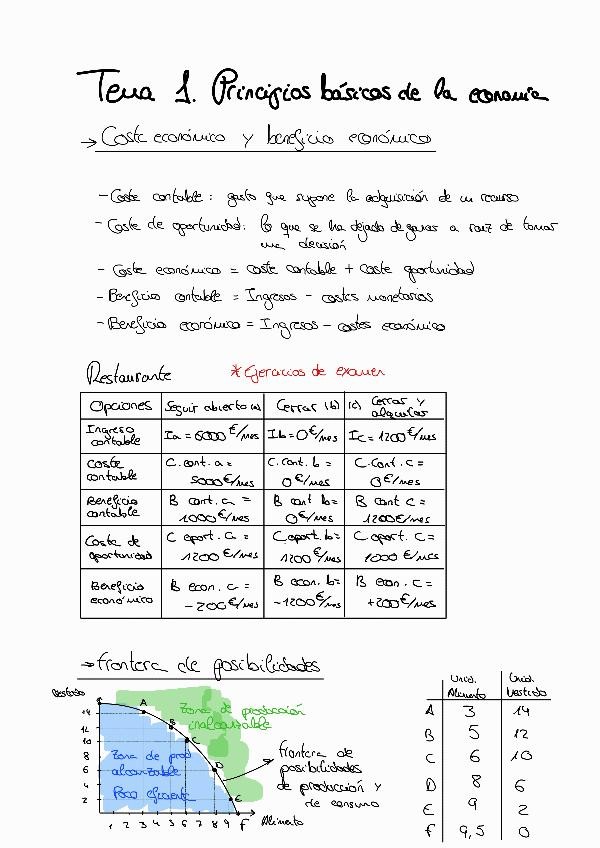 Tema 1. Principios básicos de la economía
→ Coste económico y beneficio económico
- Coste contable: gasto que supone la adquisición de un recurso
- Coste de oportunidad: lo que se ha dejado de ganar a raiz de tomar
una decisión
- Coste económico = coste contable + coste oportunidad
- Beneficio contable = Ingresos - costes monetarios
- Beneficio económico = Ingresos - costes económico
Restaurante * Ejercicios de examen
Opciones Seguir abierto (a) Cerrar (b) (c) Cerrar y alquilar
Ingreso contable Ia = 6000 €/mes Ib = 0 €/mes Ic = 1200 €/mes
Coste contable C. cont. a = 5000 €/mes C. cont. b = 0 €/mes C. cont. c = 0 €/mes
Beneficio contable B cont. a = 1000 €/mes B cont b = 0 €/mes B cont c = 1200 €/mes
Coste de oportunidad C oport. a = 1200 €/mes C oport. b = 1200 €/mes C oport. c = 1000 €/mes
Beneficio económico B econ. c = -200 €/mes B econ. b = -1200 €/mes B econ. c = +200 €/mes
→ frontera de posibilidades
Vestido
14
12
10
8
6
4
2
A
B
C
D
E
Zona de producción
inalcanzable
Zona de prod
alcanzable
Poco eficiente
frontera de
posibilidades
de producción y
de consumo
1 2 3 4 5 6 7 8 9 F Alimento
Unid. Alimento Unid. Vestido
A 3 14
B 5 12
C 6 10
D 8 6
E 9 2
F 9,5 0